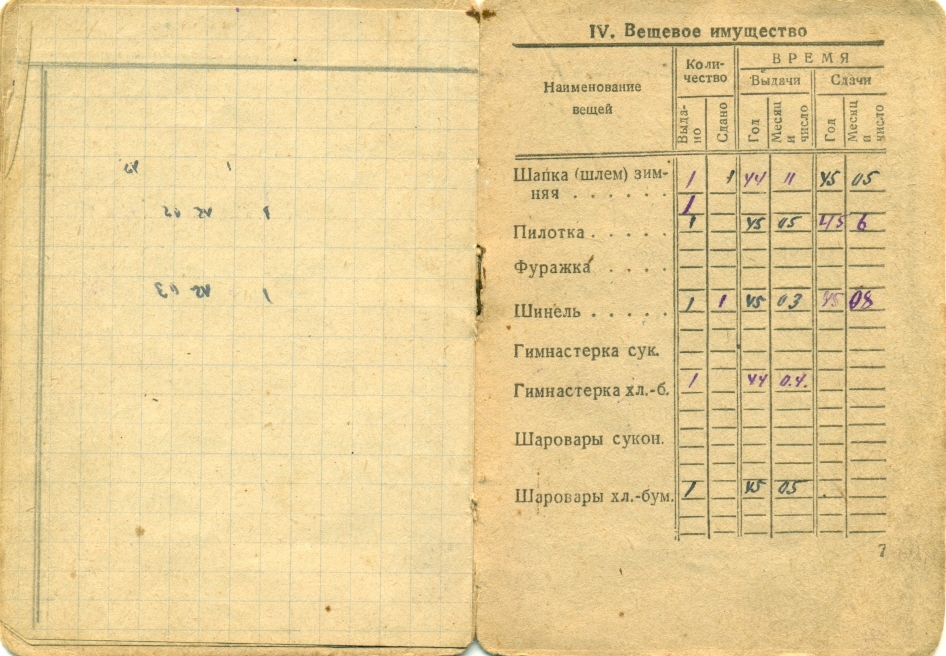 IV. Вещевое имущество
Наименование вещей
Коли-
чество
ВРЕМЯ
Выдачи
Сдачи
Выда-
но
Сдано
Год
Месяц и число
Год
Месяц и число
Шапка (шлем) зим-
няя . . . . . . 1 1 44 11 45 05
1
Пилотка . . . . . 1 45 05 45 6
Фуражка . . . .
Шинель . . . . . 1 1 45 03 45 08
Гимнастерка сук.
Гимнастерка хл.-б. 1 44 04.
Шаровары сукон.
Шаровары хл.-бум. 1 45 05
7